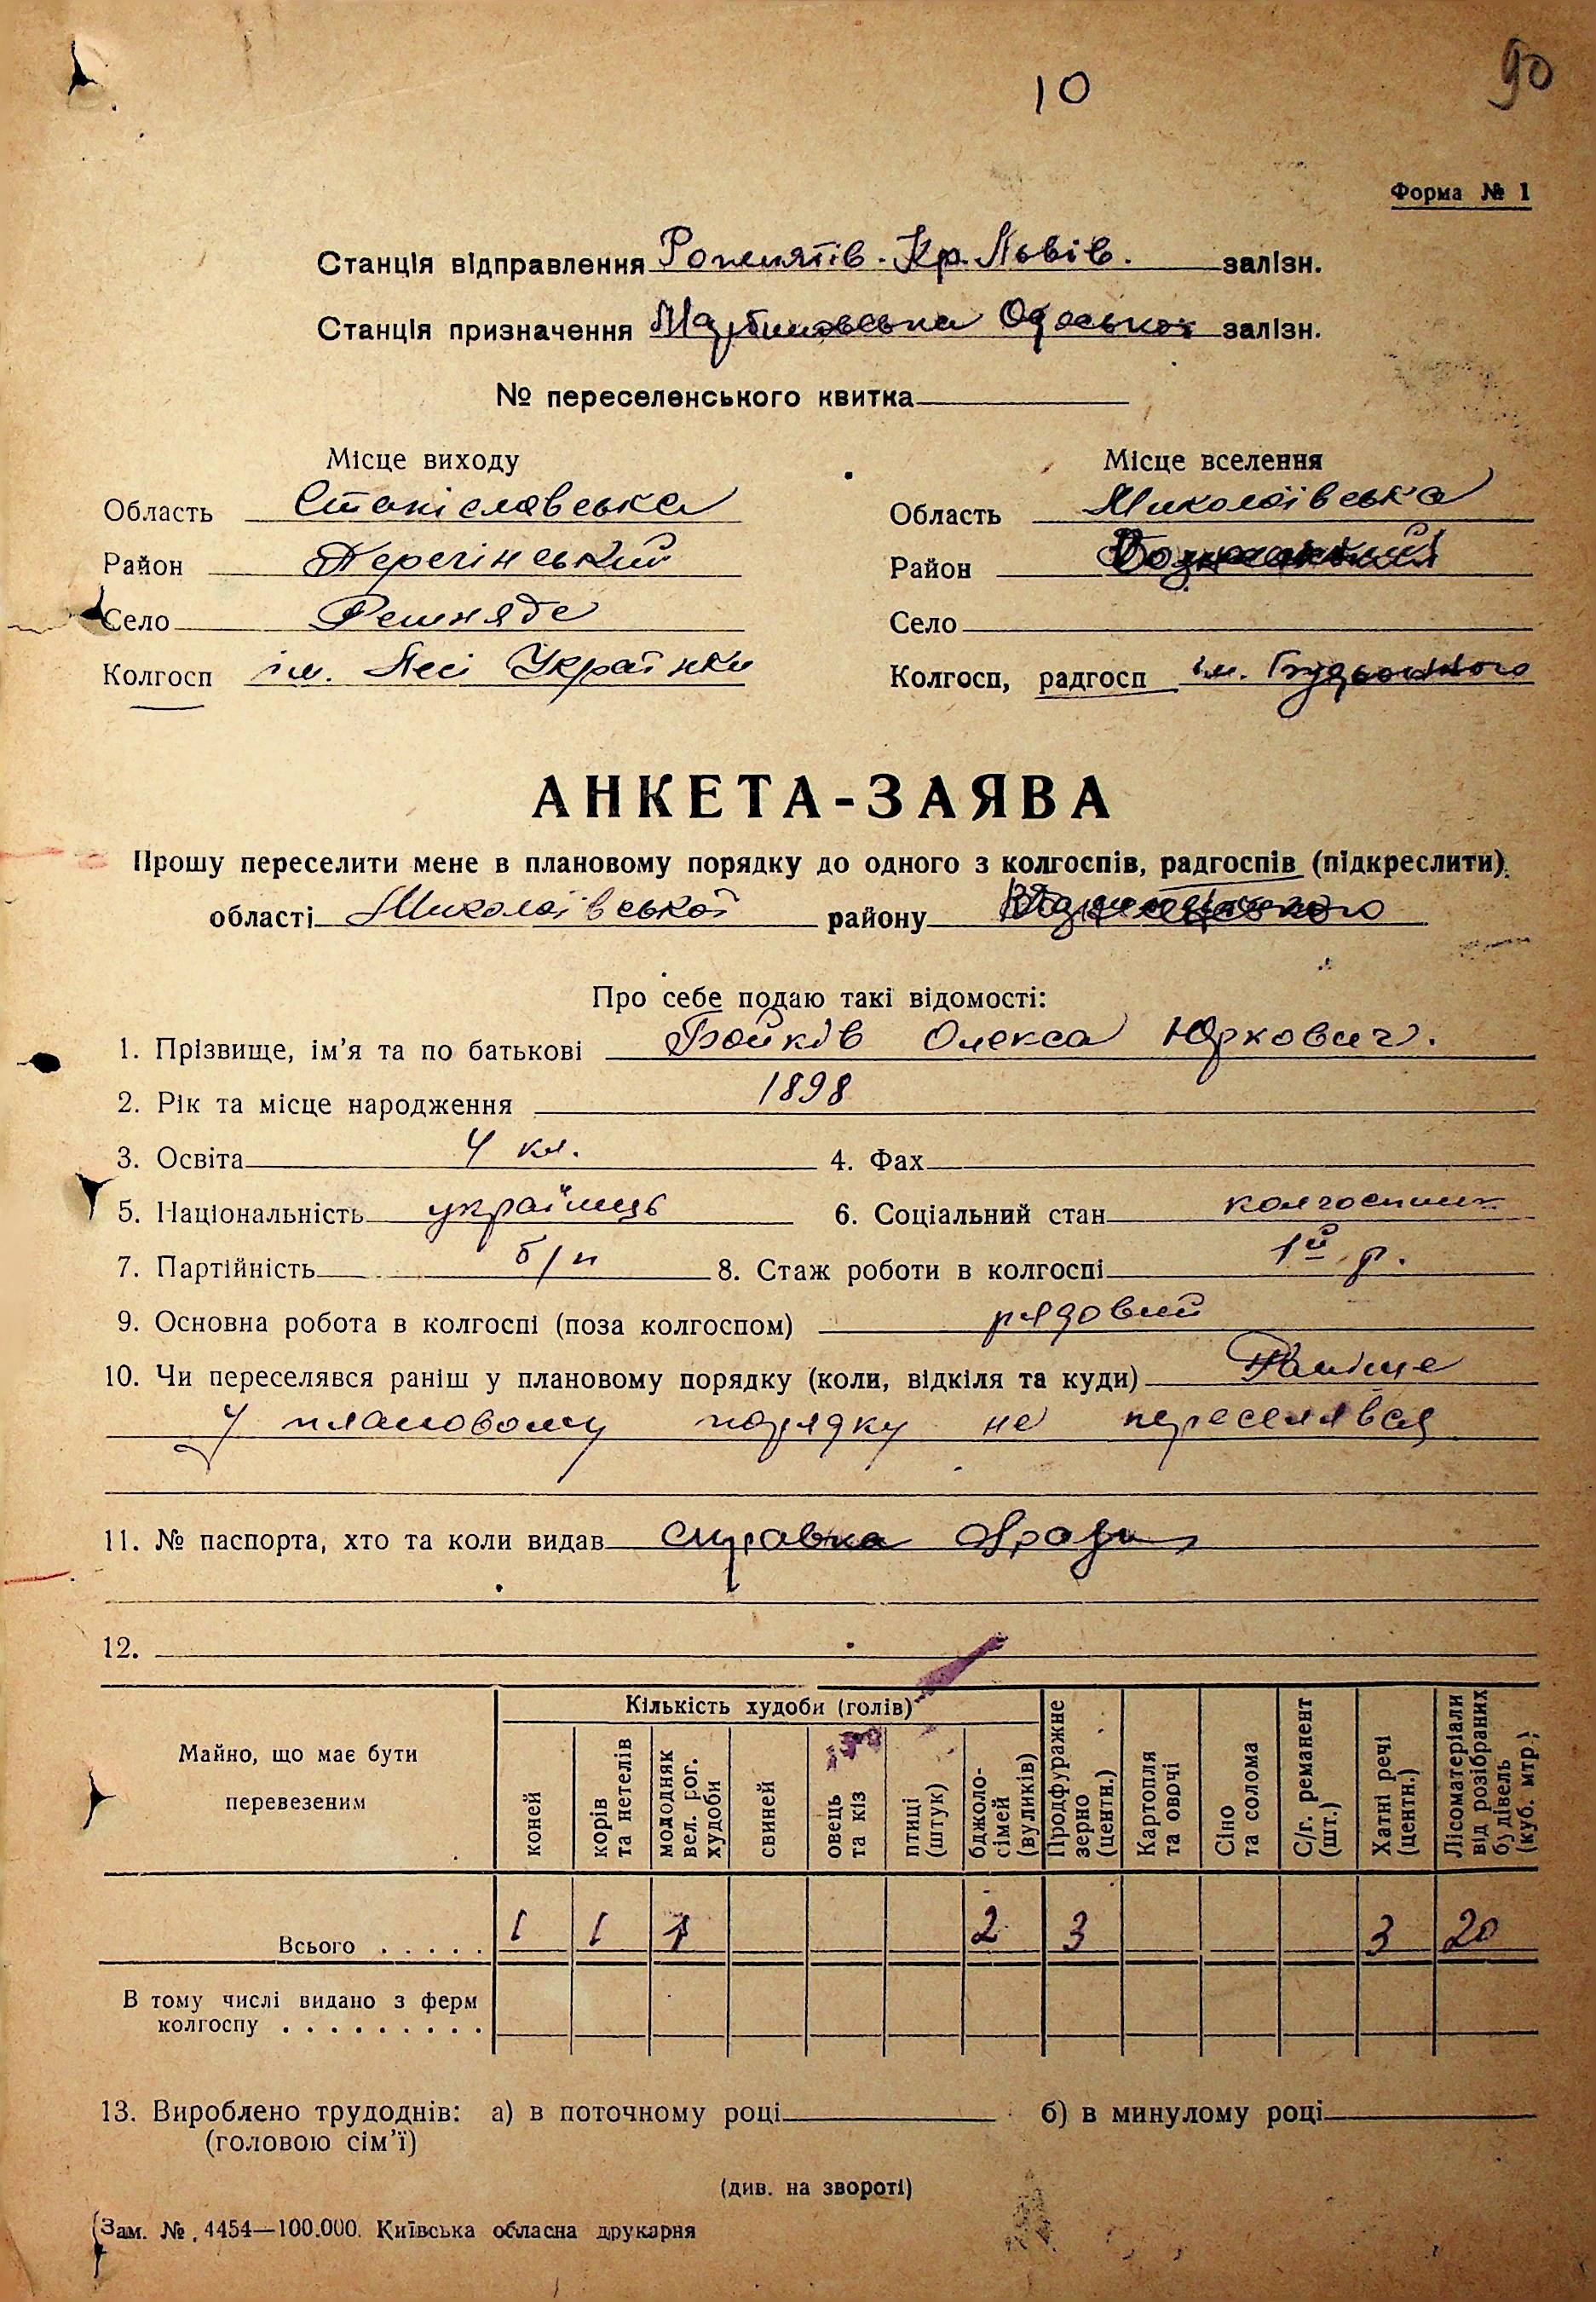 10
90
Форма № 1
Станція відправлення Рожнятів. Кр. Львів. залізн.
Станція призначення Мартинівська Одеської залізн.
№ переселенського квитка
Місце виходу
Місце вселення
Область Станіславська
Область Миколаївська
Район Перегінський
Район
Село
Село
Колгосп ім. Лесі Українки
Колгосп, радгосп ім. Будьонного
АНКЕТА-ЗАЯВА
Прошу переселити мене в плановому порядку до одного з колгоспів, радгоспів (підкреслити)
області Миколаївської району
Про себе подаю такі відомості:
1. Прізвище, ім'я та по батькові Бойків Олекса Юркович.
2. Рік та місце народження 1898
3. Освіта 4 кл. 4. Фах
5. Національність українець 6. Соціальний стан колгоспник
7. Партійність б/п 8. Стаж роботи в колгоспі 1й р.
9. Основна робота в колгоспі (поза колгоспом) рядовий
10. Чи переселявся раніш у плановому порядку (коли, відкіля та куди) Раніше
у плановому порядку не переселявся
11. № паспорта, хто та коли видав справка
12.
Майно, що має бути перевезеним
Кількість худоби (голів)
коней
корів та нетелів
молодняк вел. рог. худоби
свиней
овець та кіз
птиці (штук)
бджоло-сімей (вуликів)
Продфуражне зерно (центн.)
Картопля та овочі
Сіно та солома
С/г. реманент (шт.)
Хатні речі (центн.)
Лісоматеріали від розібраних будівель (куб. мтр.)
Всього . . . . . 1 1 1 2 3 3 20
В тому числі видано з ферм
колгоспу . . . . . . . . .
13. Вироблено трудоднів: а) в поточному році б) в минулому році
(головою сім'ї)
(див. на звороті)
Зам. № 4454—100.000. Київська обласна друкарня